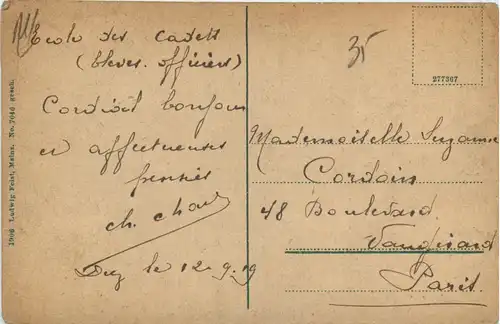 Ecole des cadets
(élèves officiers)
Cordial bonjour
et affectueuses
pensées
Ch.
Diez le 12-9-19
35
277307
Mademoiselle Suzanne
Cordoin
48 Boulevard
Vaugirard
Paris
1906 Ludwig Feist, Mainz. No. 7040 gesch.